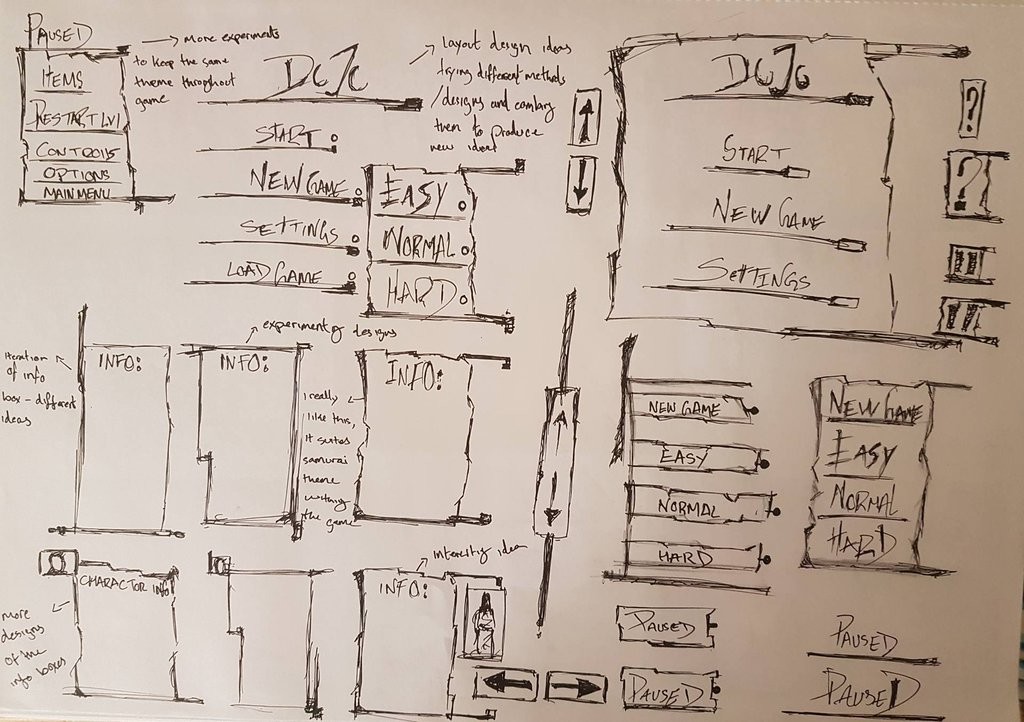 PAUSED
ITEMS
RESTART LVl
CONTROlS
OPTIONS
MAIN MENU
→ More experiments
to keep the same
theme throughout
game
DOJO
START
NEW GAME
SETTINGS
LOAD GAME
EASY
NORMAL
HARD
→ Layout design ideas
trying different methods
/designs and
them to produce
new ideas
DOJO
START
NEW GAME
SETTINGS
?
?
Iteration
of info
box - different
ideas
INFO:
→ experimenting designs
INFO:
I really
like this,
it suites
samurai
theme
withing
the game
INFO:
NEW GAME
EASY
NORMAL
HARD
NEW GAME
EASY
NORMAL
HARD
More
designs
of the
info boxes
CHARACTOR INFO
→ intensity idea
INFO:
PAUSED
PAUSED
PAUSED
PAUSED